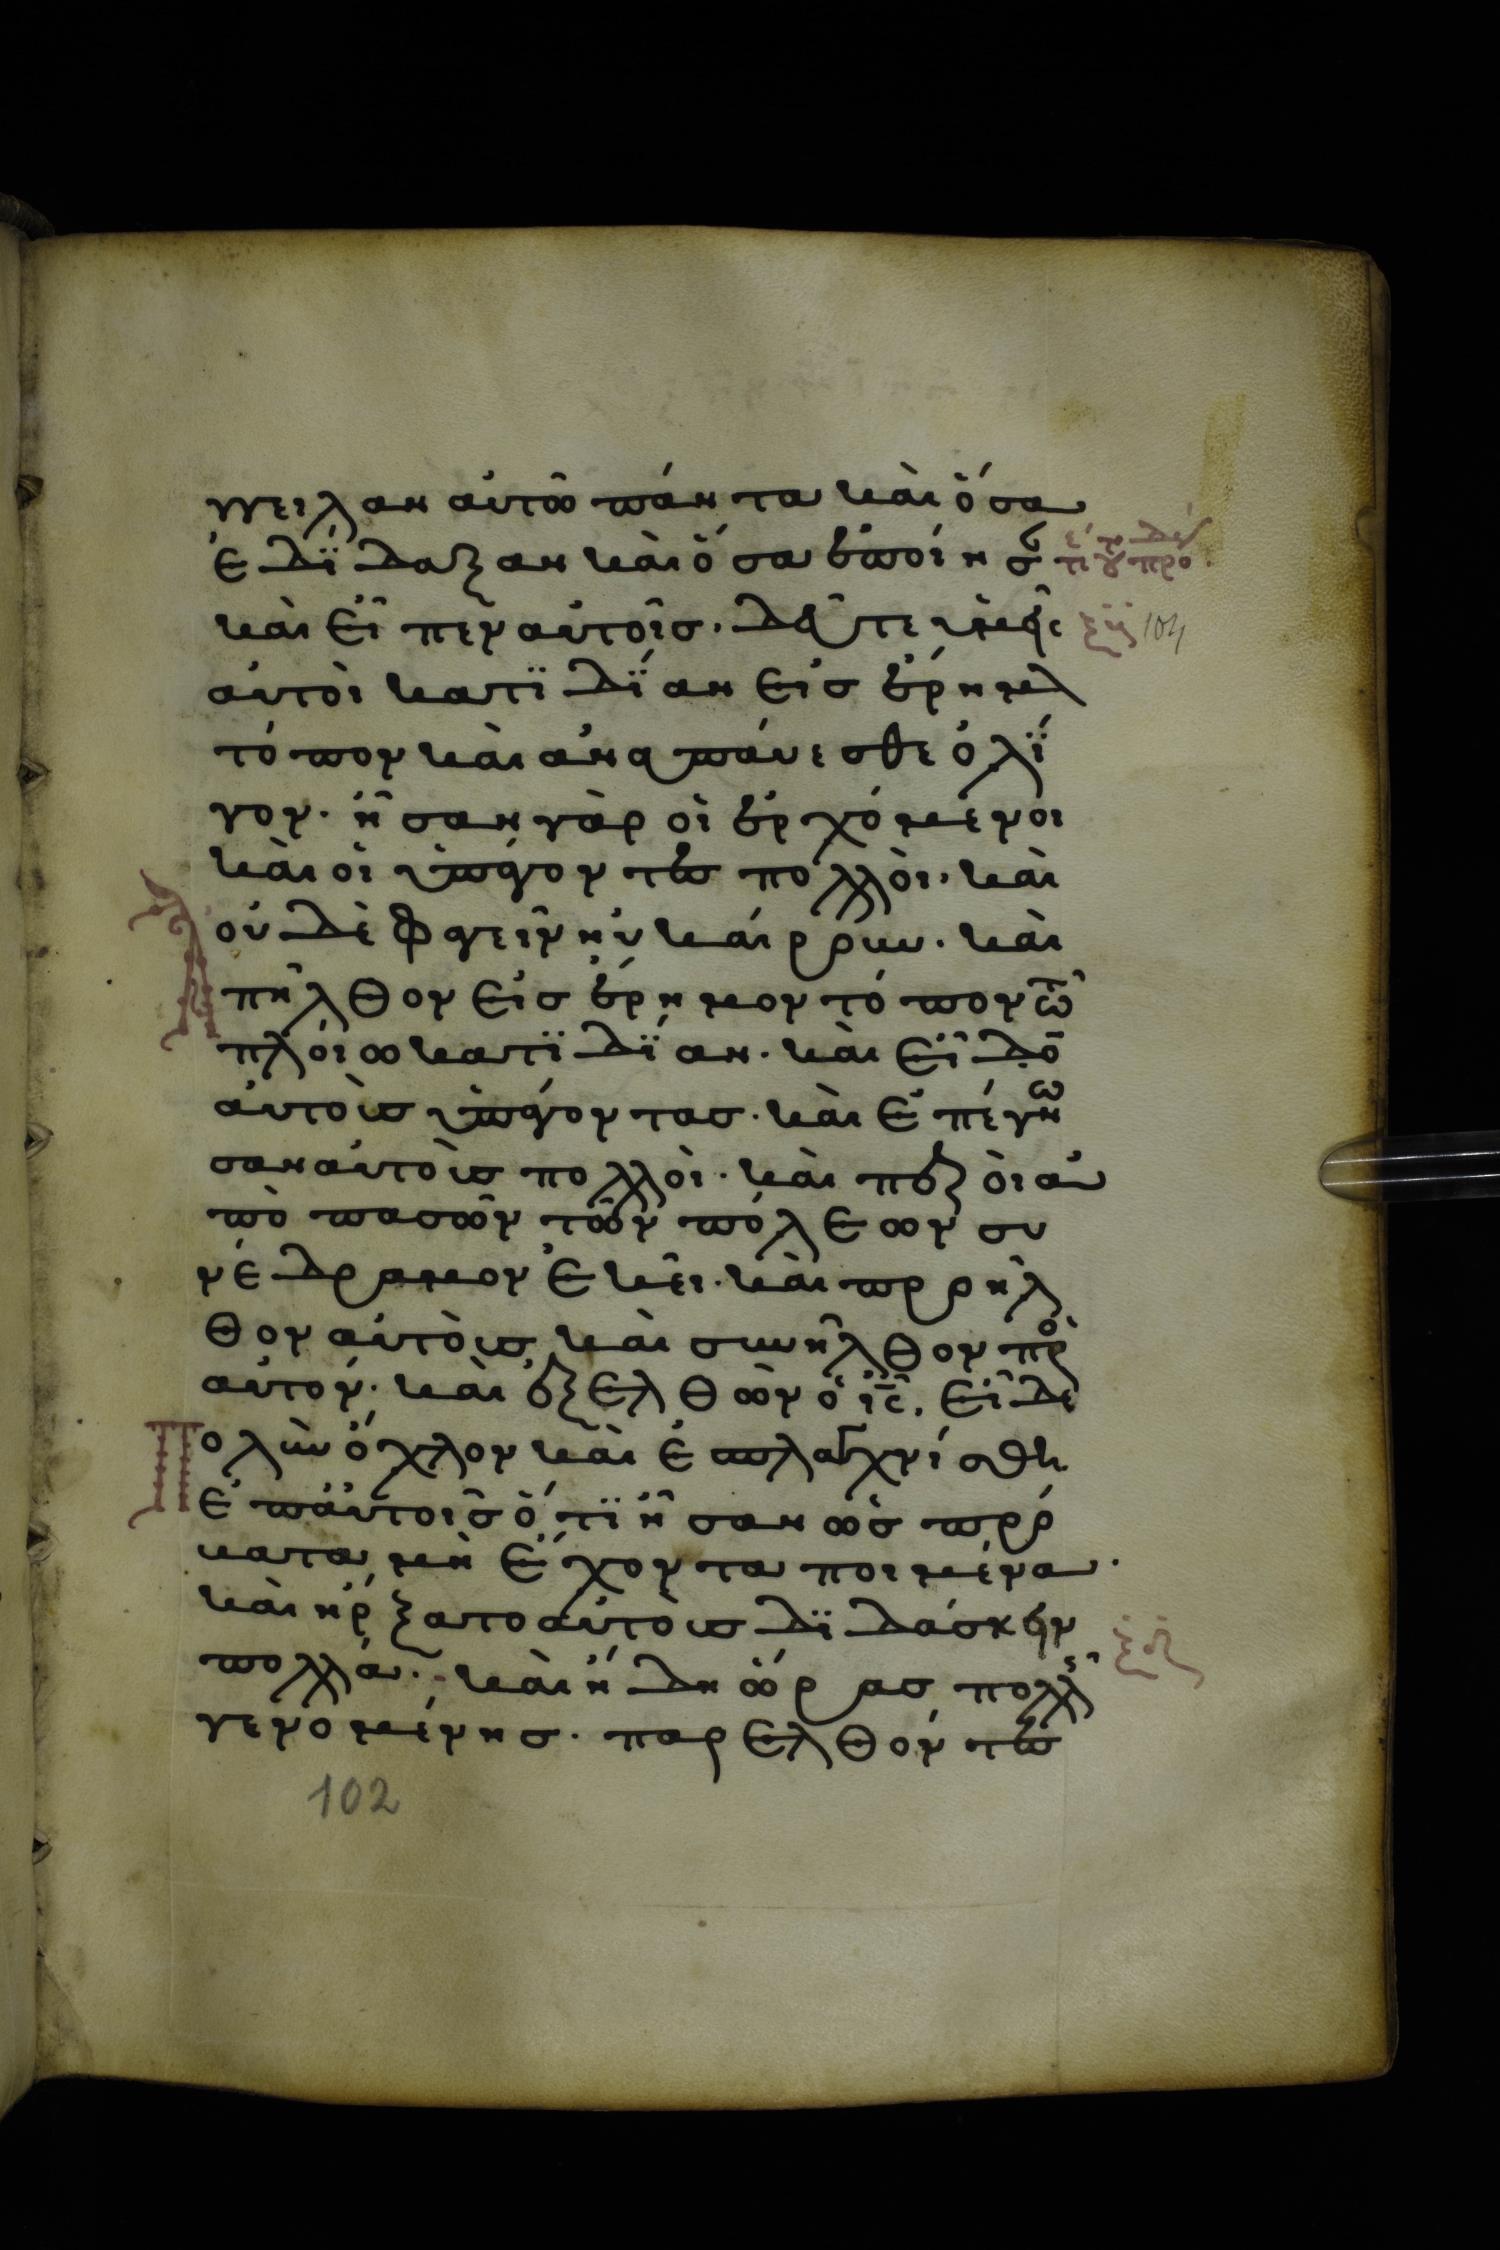 γγειλαν αὐτῶ πάντα καὶ ὅσα
ἐδίδαξαν καὶ ὅσα ἐποίησ
καὶ εἶπεν αὐτοῖσ· δεῦτε ὑμεῖς
αὐτοὶ κατϊδΐαν εἰσ ἔρημ
τόπον καὶ ἀναπάυεσθε ὀλΐ
γον· ἦσαν γὰρ οἱ ἐρχόμενοι
καὶ οἱ ὑπάγοντεσ πολλοὶ· καὶ
οὐδὲ φαγεῖν ηὐκαίρουν· καὶ
Ἀπῆλθον εἰσ ἔρημον τόπον τῶ
πλοίω κατϊδΐαν· καὶ εἶδο
αὐτοὺσ ὑπάγοντασ· καὶ ἐπέγνω
σαν αὐτοὺσ πολλοὶ· καὶ πεζοὶ ἀ
πὸ πασῶν τῶν πόλεων συ
νέδραμον ἐκεῖ· καὶ προῆλ
θον αὐτοὺσ καὶ συνῆλθον πρὸ
αὐτόν· καὶ ἐξελθὼν ὁ ις. εἶδε
Πολὺν ὄχλον καὶ ἐσπλαγχνίσθη
ἐπ αὐτοῖσ ὅτϊ ἦσαν ὡσ πρό
βατα μὴ ἔχοντα ποιμένα·
καὶ ἤρξατο αὐτοὺσ διδάσκειν
πολλά· καὶ ἤδη ὥρασ πολλῆ
γενομένησ· παρελθόντεσ
104
102